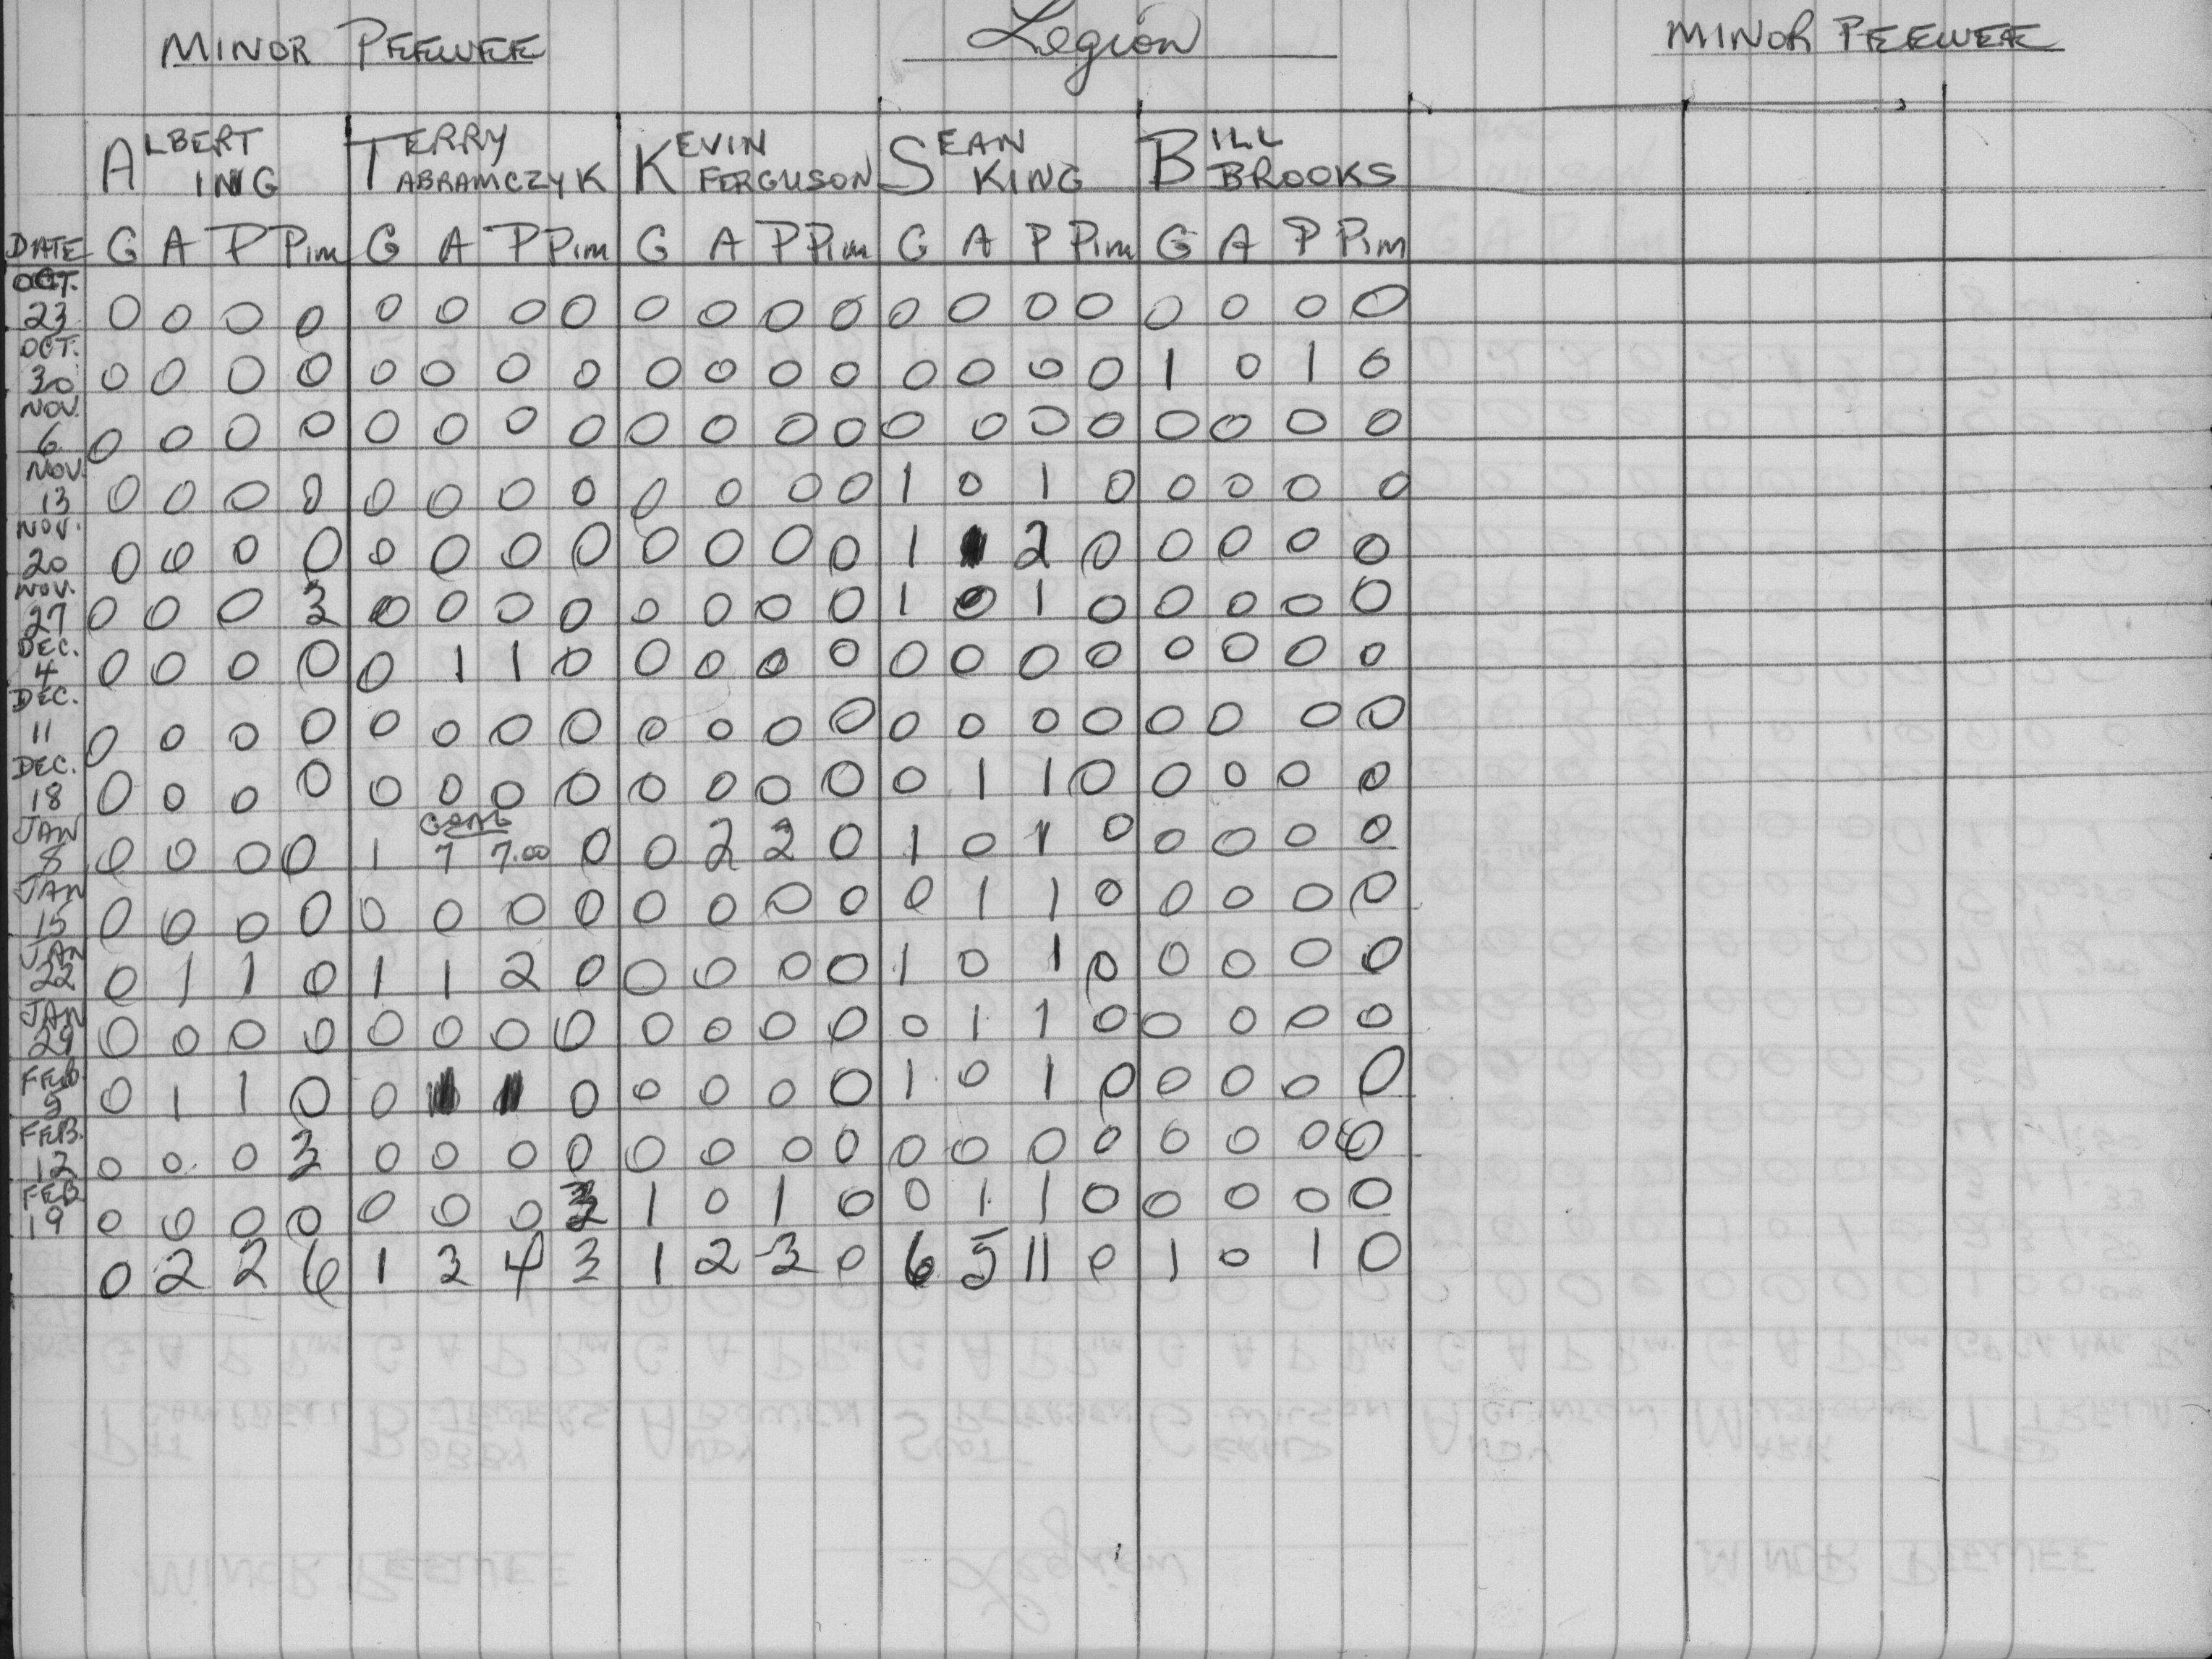 MINOR PEEWEE Legion MINOR PEEWEE
ALBERT ING TERRY ABRAMCZYK KEVIN FERGUSON SEAN KING BILL BROOKS
DATE G A P Pim G A P Pim G A P Pim G A P Pim G A P Pim
OCT. 23 0 0 0 0 0 0 0 0 0 0 0 0 0 0 0 0 0 0 0 0
OCT. 30 0 0 0 0 0 0 0 0 0 0 0 0 0 0 0 0 1 0 1 0
NOV. 6 0 0 0 0 0 0 0 0 0 0 0 0 0 0 0 0 0 0 0 0
NOV. 13 0 0 0 0 0 0 0 0 0 0 0 0 1 0 1 0 0 0 0 0
NOV. 20 0 0 0 0 0 0 0 0 0 0 0 0 1 1 2 0 0 0 0 0
NOV. 27 0 0 0 3 0 0 0 0 0 0 0 0 1 0 1 0 0 0 0 0
DEC. 4 0 0 0 0 0 1 1 0 0 0 0 0 0 0 0 0 0 0 0 0
DEC. 11 0 0 0 0 0 0 0 0 0 0 0 0 0 0 0 0 0 0 0 0
DEC. 18 0 0 0 0 0 0 0 0 0 0 0 0 0 1 1 0 0 0 0 0
JAN 8 0 0 0 0 1 7 7.00 0 0 2 2 0 1 0 1 0 0 0 0 0
JAN 15 0 0 0 0 0 0 0 0 0 0 0 0 0 1 1 0 0 0 0 0
JAN 22 0 1 1 0 1 1 2 0 0 0 0 0 1 0 1 0 0 0 0 0
JAN 29 0 0 0 0 0 0 0 0 0 0 0 0 0 1 1 0 0 0 0 0
FEB. 5 0 1 1 0 0 1 1 0 0 0 0 0 1 0 1 0 0 0 0 0
FEB. 12 0 0 0 3 0 0 0 0 0 0 0 0 0 0 0 0 0 0 0 0
FEB 19 0 0 0 0 0 0 0 3 1 0 1 0 0 1 1 0 0 0 0 0
0 2 2 6 1 3 4 3 1 2 3 0 6 5 11 0 1 0 1 0